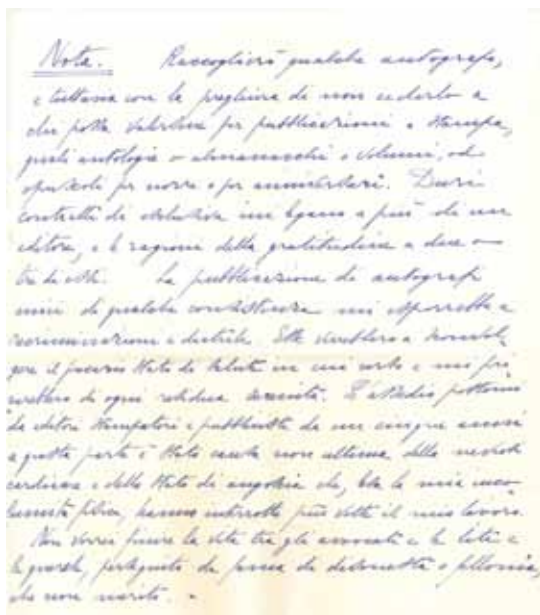 Nota. Raccoglierò qualche autografo,
e tuttavia con la preghiera di non cederlo a
chi possa valersene per pubblicazioni a stampa,
quali antologie o almanacchi o volumi, od
opuscoli per nozze o per anniversari. Duri
contratti di esclusiva mi legano a più di un
editore, e le ragioni della gratitudine a due o
tre di essi. La pubblicazione di autografi
miei di qualche consistenza mi esporrebbe a
recriminazioni e diatribe. Esse verrebbero a sconvol-
gere il precario stato di salute in cui verso e mi pri-
verebbero di ogni residua serenità. L'assedio postomi
da editori stampatori e pubblicisti da un cinque anni
a questa parte è stato causa non ultima della nevrosi
cardiaca e dello stato di angoscia che, lesa la mia inco-
lumità fisica, hanno interrotto più volte il mio lavoro.
Non vorrei finire la vita tra gli avvocati e le liti e
le querele, perseguito da fama di disonestà o fellonia,
che non merito. =